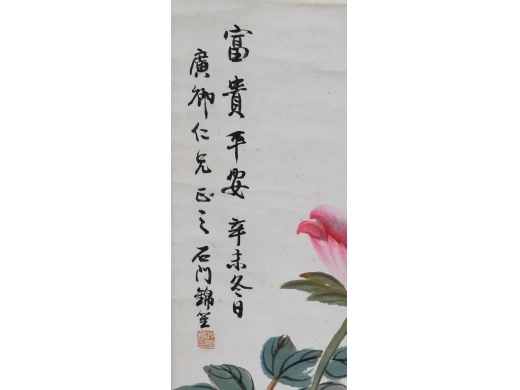 富貴平安 辛未冬日
廣卿仁兄正之 石門錦笙